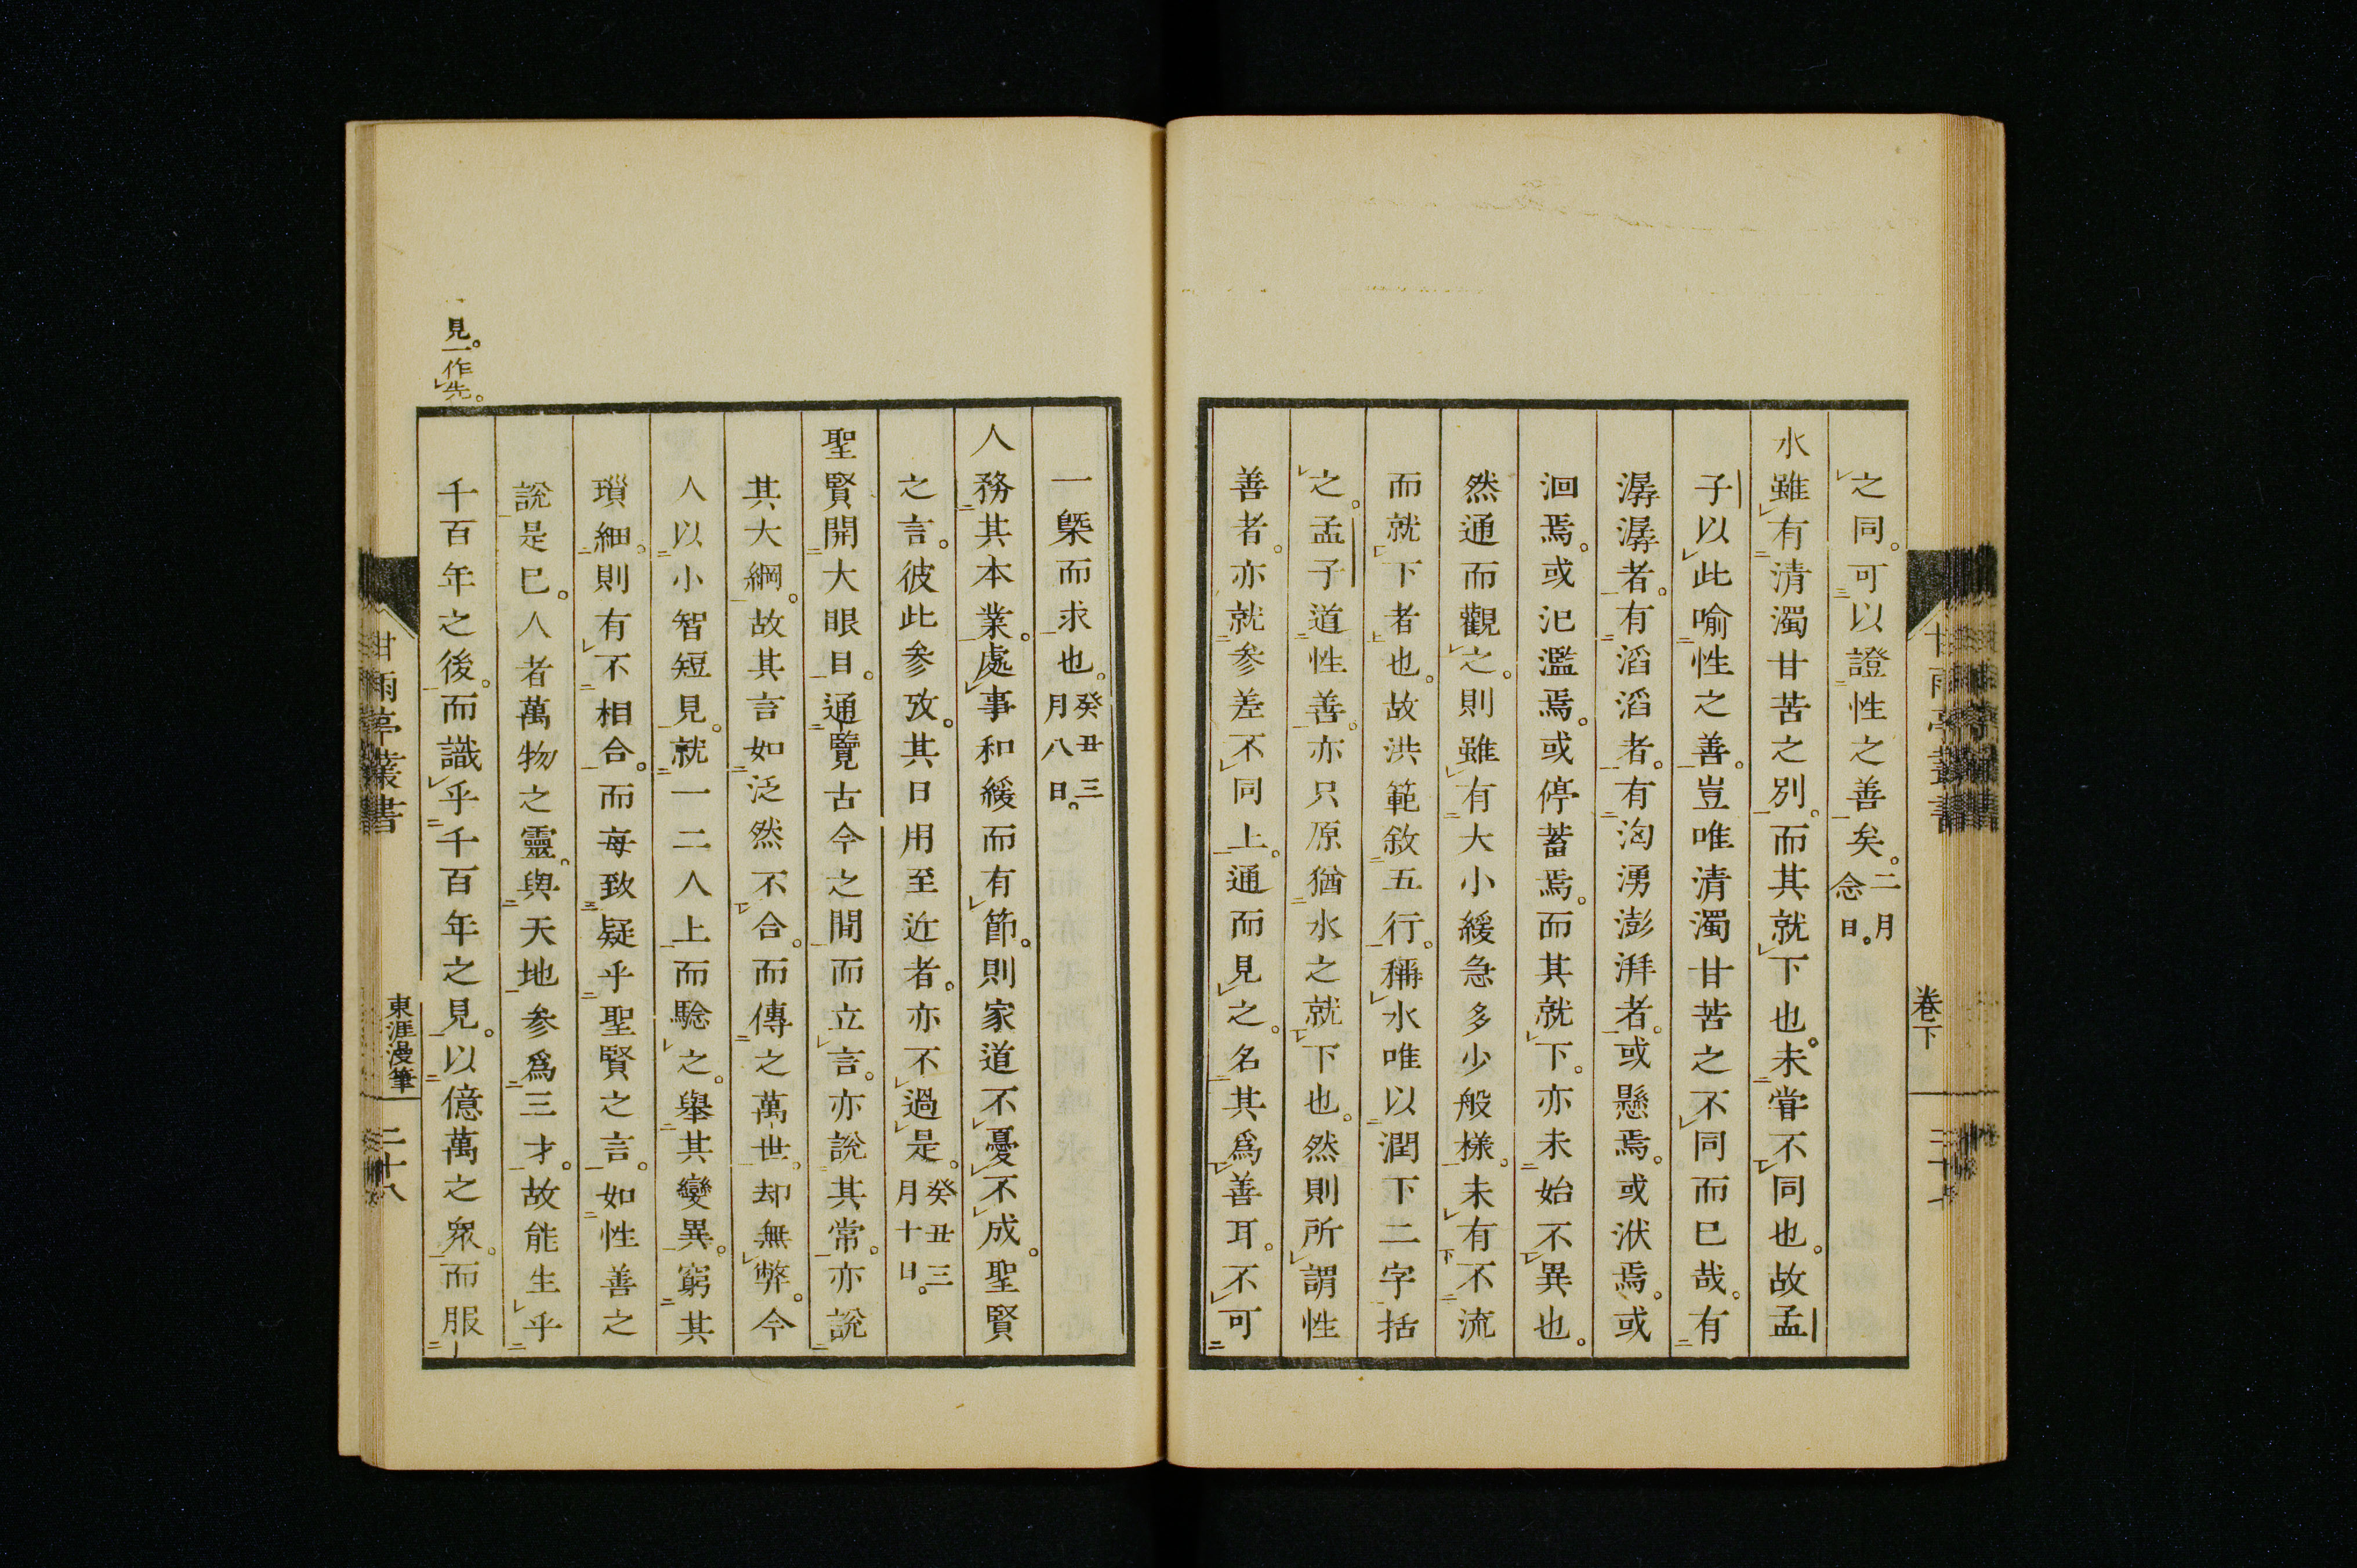 之同。可以證性之善矣。二月念日。
水雖有清濁甘苦之別。而其就下也。未甞不同也。故孟
子以此喻性之善。豈唯清濁甘苦之不同而已哉。有
潺潺者。有滔滔者。有洶湧澎湃者。或懸焉。或洑焉。或
洄焉。或汜濫焉。或停蓄焉。而其就下。亦未始不異也。
然通而觀之。則雖有大小緩急多少般樣。未有不流
而就下者也。故洪範敘五行。稱水唯以潤下二字括
之。孟子道性善。亦只原猶水之就下也。然則所謂性
善者。亦就參差不同上。通而見之。名其爲善耳。不可
卷下
一槩而求也。癸丑三月八日。
人務其本業。處事和緩而有節。則家道不憂不成。聖賢
之言。彼此參攷。其日用至近者。亦不過是。癸丑三月十日。
聖賢開大眼目。通覽古今之間而立言。亦說其常。亦說
其大綱。故其言如泛然不合。而傳之萬世。却無弊。今
人以小智短見。就一二人上而驗之。舉其變異。窮其
瑣細。則有不相合。而每致疑乎聖賢之言。如性善之
說是已。人者萬物之靈。與天地參爲三才。故能生乎
千百年之後。而識乎千百年之見。以億萬之衆。而服
見。一作先。
甘雨亭叢書
東涯漫筆
二十八